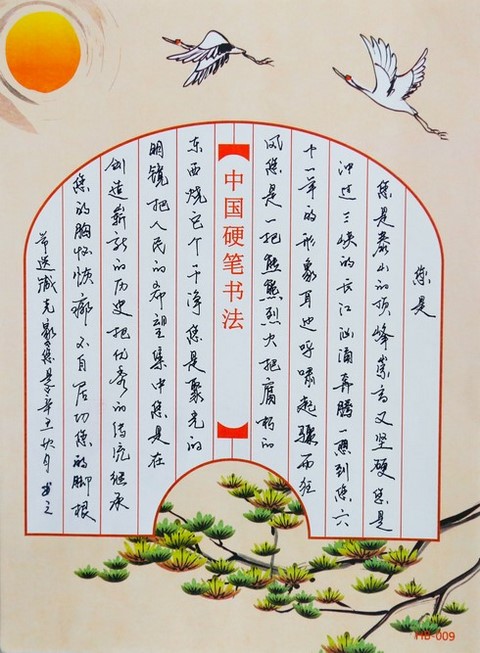 您是
您是泰山的顶峰崇高又坚硬您是
冲过三峡的长江汹涌奔腾一想到您六
十一年的形象耳边呼啸起骤雨狂
风您是一把熊熊烈火把腐朽的
中国硬笔书法
东西烧它个干净您是聚光的
明镜把人民的希望集中您是在
创造崭新的历史把优秀的传统继承
您的胸怀恢廓不自居功您的脚根
节选臧克家您是辛丑秋月书之
HB-009